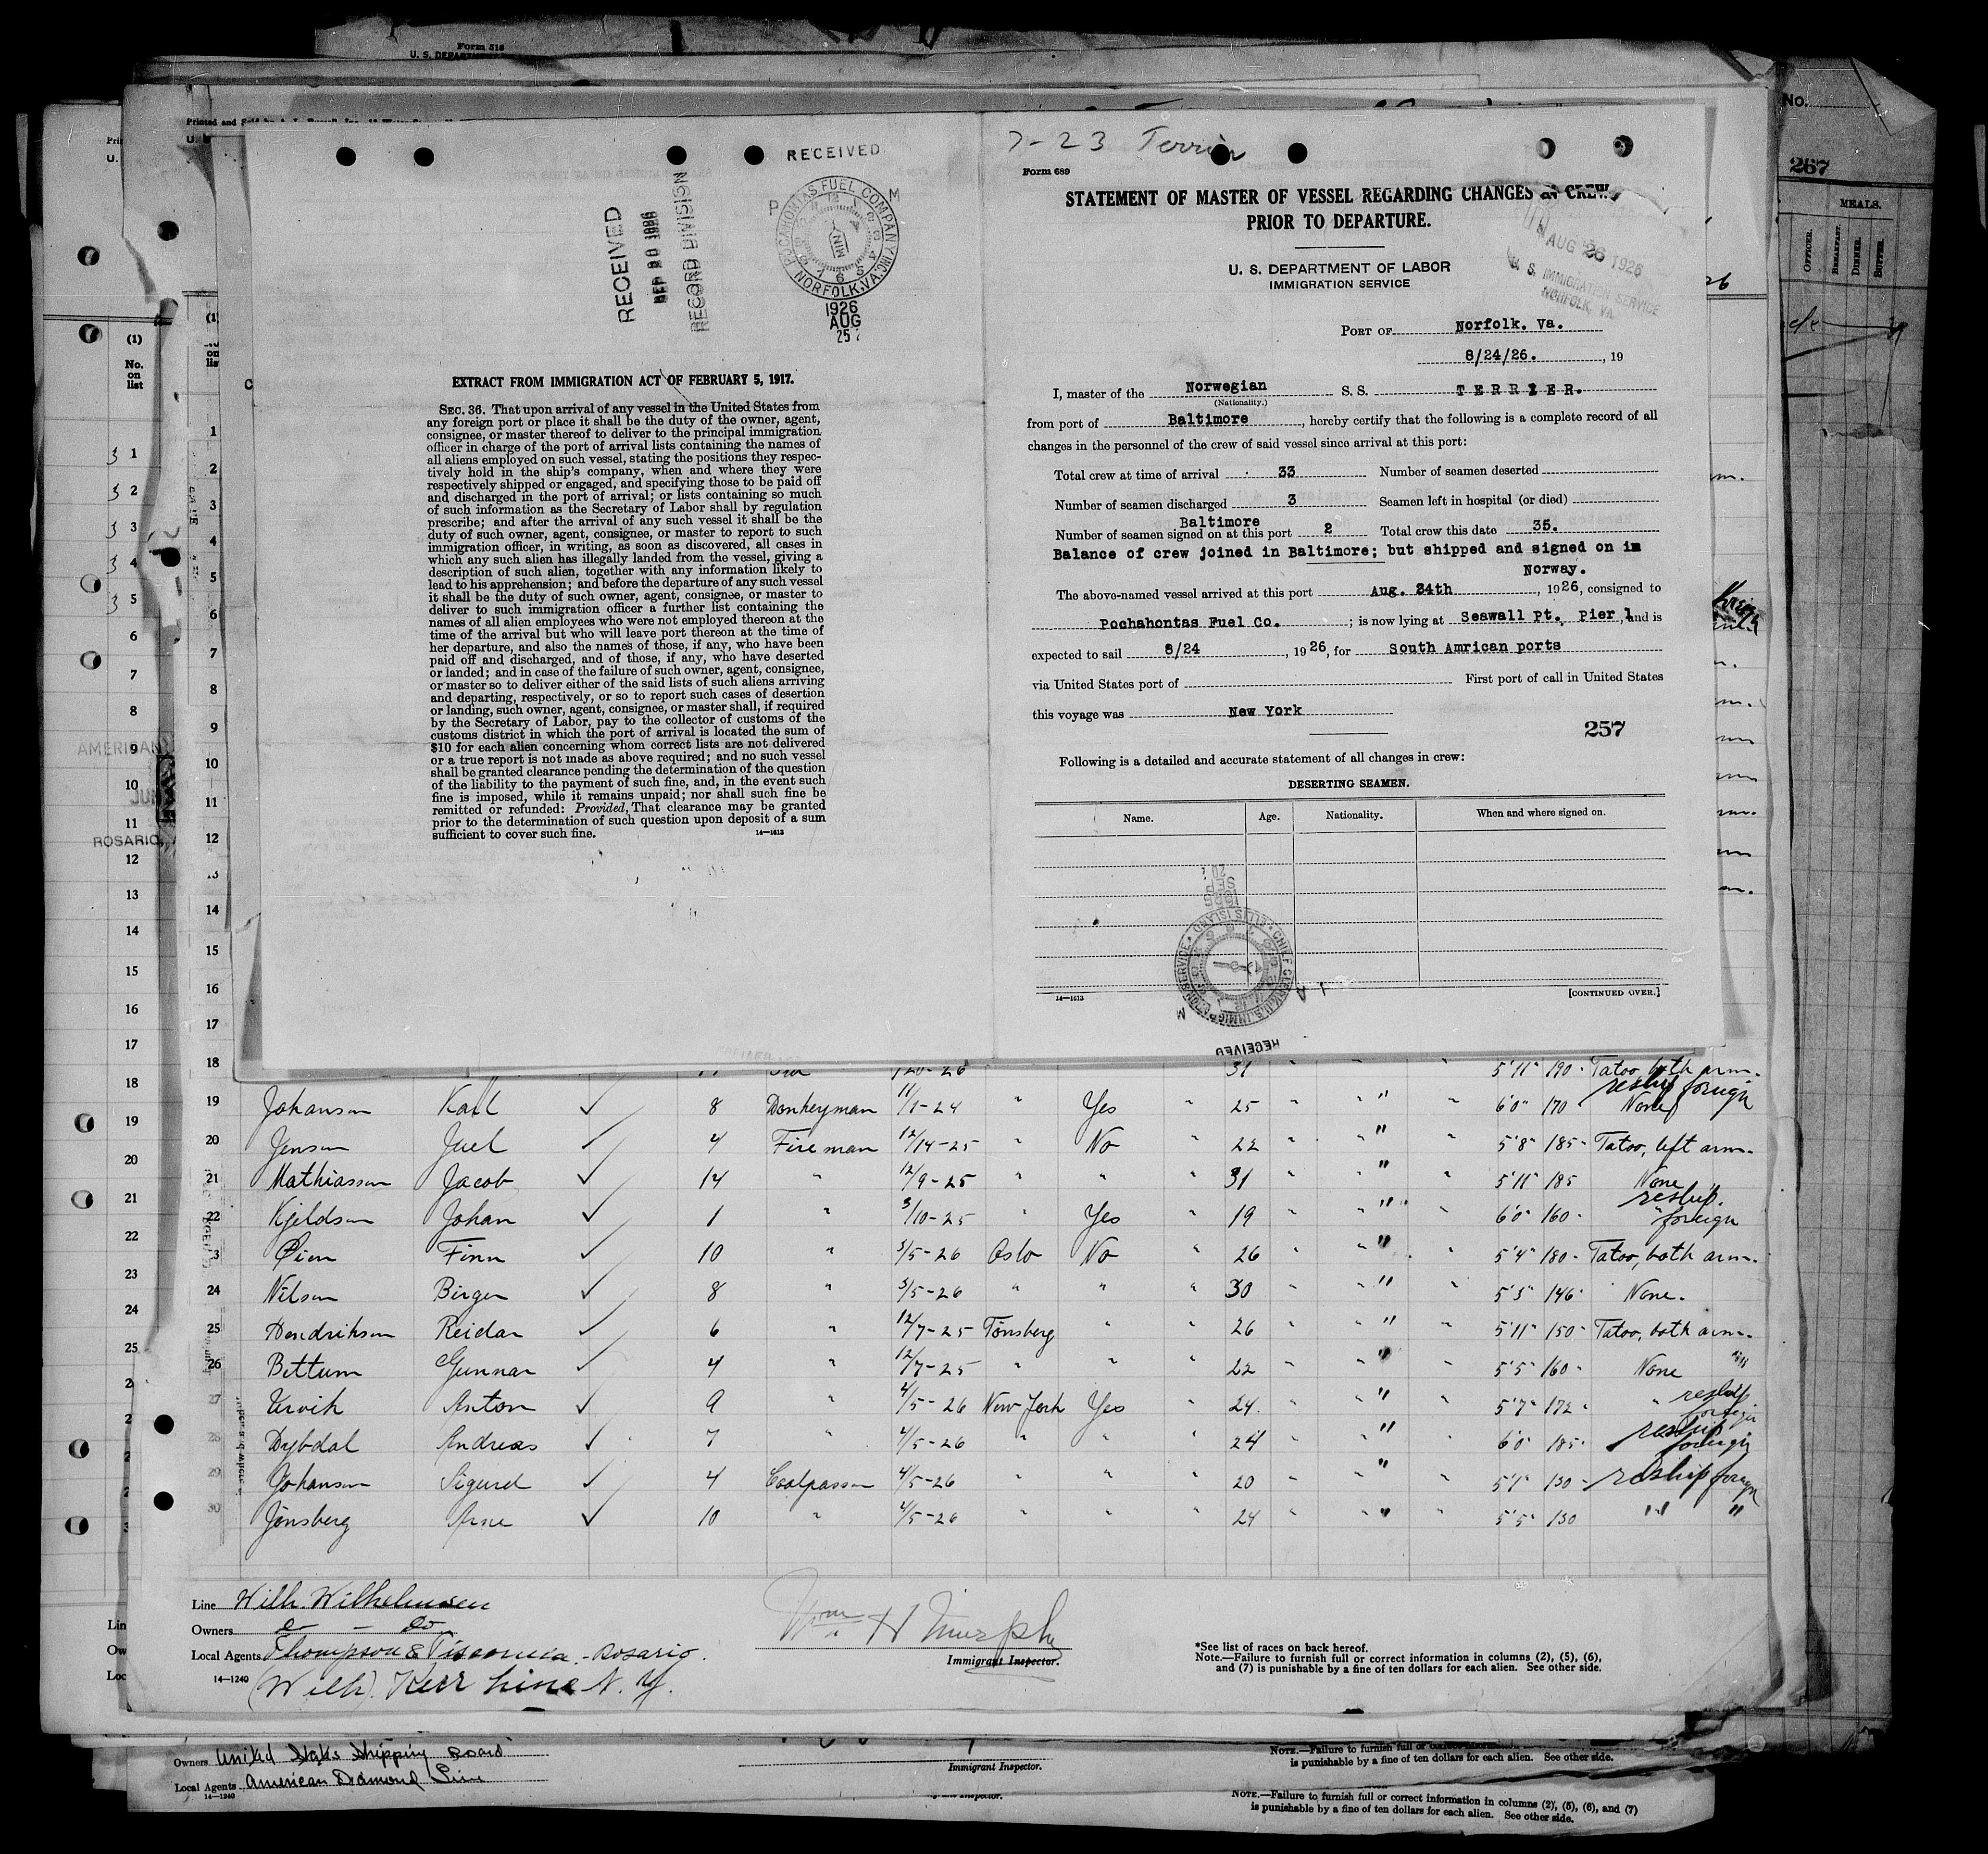 Form 516
No.
267
MEALS.
OFFICER.
BREAKFAST.
DINNER.
SUPPER.
RECEIVED
RECEIVED
RECORD DIVISION
P M
POCAHONTAS FUEL COMPANY INC.
NORFOLK, VA.
1926
AUG
25
EXTRACT FROM IMMIGRATION ACT OF FEBRUARY 5, 1917.
SEC. 36. That upon arrival of any vessel in the United States from
any foreign port or place it shall be the duty of the owner, agent,
consignee, or master thereof to deliver to the principal immigration
officer in charge of the port of arrival lists containing the names of
all aliens employed on such vessel, stating the positions they respec-
tively hold in the ship's company, when and where they were
respectively shipped or engaged, and specifying those to be paid off
and discharged in the port of arrival; or lists containing so much
of such information as the Secretary of Labor shall by regulation
prescribe; and after the arrival of any such vessel it shall be the
duty of such owner, agent, consignee, or master to report to such
immigration officer, in writing, as soon as discovered, all cases in
which any such alien has illegally landed from the vessel, giving a
description of such alien, together with any information likely to
lead to his apprehension; and before the departure of any such vessel
it shall be the duty of such owner, agent, consignee, or master to
deliver to such immigration officer a further list containing the
names of all alien employees who were not employed thereon at the
time of the arrival but who will leave port thereon at the time of
her departure, and also the names of those, if any, who have been
paid off and discharged, and of those, if any, who have deserted
or landed; and in case of the failure of such owner, agent, consignee,
or master so to deliver either of the said lists of such aliens arriving
and departing, respectively, or so to report such cases of desertion
or landing, such owner, agent, consignee, or master shall, if required
by the Secretary of Labor, pay to the collector of customs of the
customs district in which the port of arrival is located the sum of
$10 for each alien concerning whom correct lists are not delivered
or a true report is not made as above required; and no such vessel
shall be granted clearance pending the determination of the question
of the liability to the payment of such fine, and, in the event such
fine is imposed, while it remains unpaid; nor shall such fine be
remitted or refunded: Provided, That clearance may be granted
prior to the determination of such question upon deposit of a sum
sufficient to cover such fine.
14—1613
7-23 Terrier
Form 689
STATEMENT OF MASTER OF VESSEL REGARDING CHANGES IN CREW
PRIOR TO DEPARTURE.
AUG 26 1926
U. S. IMMIGRATION SERVICE
NORFOLK, VA.
U. S. DEPARTMENT OF LABOR
IMMIGRATION SERVICE
PORT OF Norfolk. Va.
8/24/26. , 19
I, master of the Norwegian S. S. TERRIER.
(Nationality.)
from port of Baltimore, hereby certify that the following is a complete record of all
changes in the personnel of the crew of said vessel since arrival at this port:
Total crew at time of arrival 33 Number of seamen deserted
Number of seamen discharged 3 Seamen left in hospital (or died)
Baltimore
Number of seamen signed on at this port 2 Total crew this date 35.
Balance of crew joined in Baltimore; but shipped and signed on in
Norway.
The above-named vessel arrived at this port Aug. 24th, 1926, consigned to
Pochahontas Fuel Co. ; is now lying at Seawall Pt., Pier 1, and is
expected to sail 8/24, 1926, for South Amrican ports
via United States port of First port of call in United States
this voyage was New York
257
Following is a detailed and accurate statement of all changes in crew:
DESERTING SEAMEN.
Name. Age. Nationality. When and where signed on.
14—1613
[CONTINUED OVER.]
RECEIVED
(1)
No.
on
list
AMERICAN
ROSARIO
18 31 " " " 5'11" 190 - Tatoo, both arm.
19 Johanson Karl ✓ 8 Donkeyman 11/1-24 " Yes " 25 " " " 6'0" 170 None reship foreign
20 Jensen Juel ✓ 4 Fireman 12/14-25 " No " 22 " " " 5'8" 185 - Tatoo, left arm.
21 Mathiassen Jacob ✓ 14 " 12/9-25 " " " 31 " " " 5'11" 185 None
22 Kjeldsen Johan ✓ 1 " 3/10-25 " Yes " 19 " " " 6'0" 160 - reship. foreign
23 Øien Finn ✓ 10 " 3/5-26 Oslo No " 26 " " " 5'4" 180 - Tatoo, both arm.
24 Nilsen Birger ✓ 8 " 3/5-26 " " " 30 " " " 5'5" 146 None.
25 Hendriksen Reidar ✓ 6 " 12/7-25 Tönsberg " " 26 " " " 5'11" 150 - Tatoo, both arm.
26 Bettum Gunnar ✓ 4 " 12/7-25 " " " 22 " " " 5'5" 160 - None
27 Ervik Anton ✓ 9 " 4/5-26 New York Yes " 24 " " " 5'7" 172 " reship foreign
28 Dybdal Andreas ✓ 7 " 4/5-26 " " " 24 " " " 6'0" 185 - reship foreign
29 Johansen Sigurd ✓ 4 Coalpasser 4/5-26 " " " 20 " " " 5'7" 130 - reship foreign
30 Jönsberg Arne ✓ 10 " 4/5-26 " " " 24 " " " 5'5" 130 " "
Line Wilh. Wilhelmsen
Owners do - do
Local Agents Thompson & - Rosario.
14—1240
(Wilh). Kerr Line N. Y.
Wm H Murphy
Immigrant Inspector.
*See list of races on back hereof.
Note.—Failure to furnish full or correct information in columns (2), (5), (6),
and (7) is punishable by a fine of ten dollars for each alien. See other side.
Owners United States Shipping Board
Local Agents American Diamond Line
14—1240
Immigrant Inspector.
NOTE.—Failure to furnish full or correct
is punishable by a fine of ten dollars for each alien. See other side.
NOTE.—Failure to furnish full or correct information in columns (2), (5), (6), and (7)
is punishable by a fine of ten dollars for each alien. See other side.